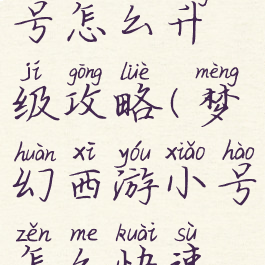 号怎么升
jí gōng lüè mèng
级攻略(梦
huàn xī yóu xiǎo hào
幻西游小号
zěn me kuài sù
怎么快速